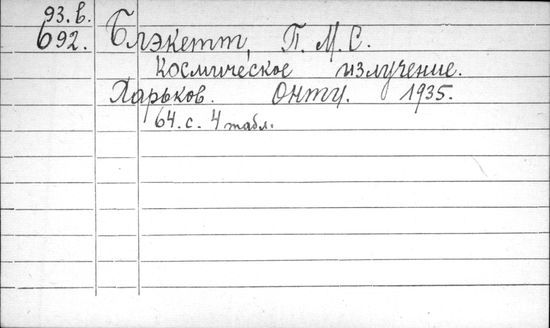 93. в.
692. Блэкетт, П. М. С.
Космическое излучение.
Харьков. ОНТУ. 1935.
64. с. 4 табл.